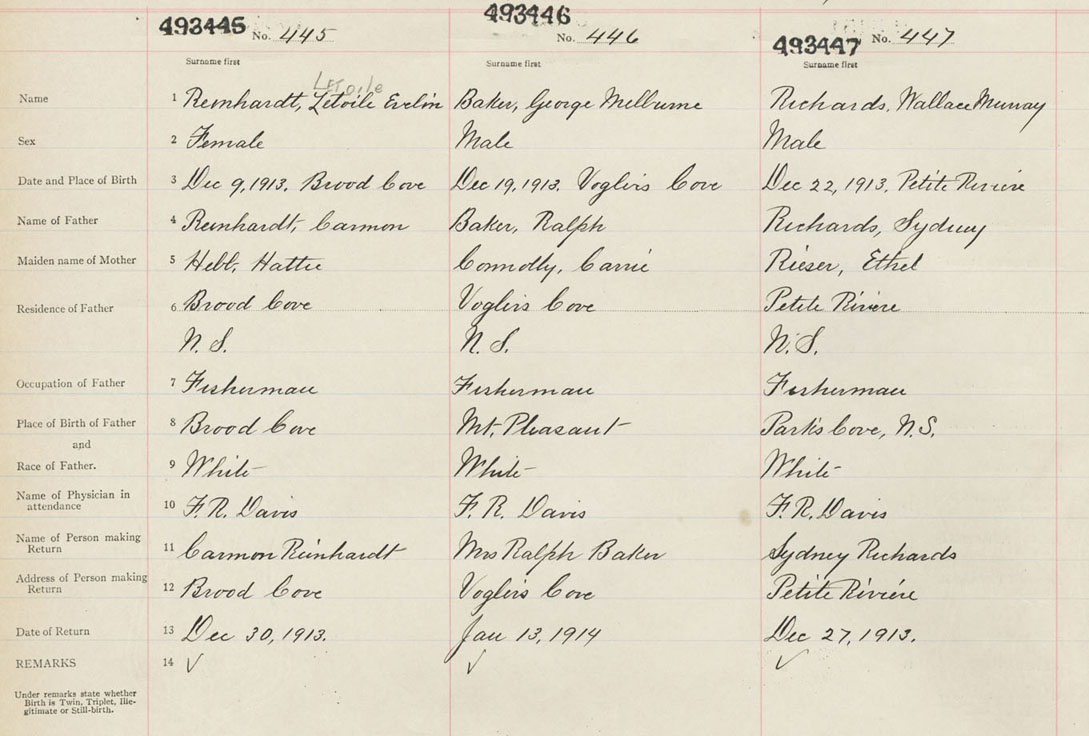 493445 No. 445 493446 No. 446 493447 No. 447
Surname first Surname first Surname first
Letoile
Name 1 Reinhardt, Letoile Evelin Baker, George Melburne Richards, Wallace Murray
Sex 2 Female Male Male
Date and Place of Birth 3 Dec 9, 1913. Brood Cove Dec 19, 1913. Voglirs Cove Dec 22, 1913, Petite Riviere
Name of Father 4 Reinhardt, Carmon Baker, Ralph Richards, Sydney
Maiden name of Mother 5 Hebb, Hattie Connolly, Carrie Rieser, Ethel
Residence of Father 6 Brood Cove Voglirs Cove Petite Riviere
N.S. N.S. N.S.
Occupation of Father 7 Fisherman Fisherman Fisherman
Place of Birth of Father 8 Brood Cove Mt. Pleasant Parks Cove, N.S.
and
Race of Father. 9 White White White
Name of Physician in
attendance 10 F.R. Davis F.R. Davis F.R. Davis
Name of Person making
Return 11 Carmon Reinhardt Mrs Ralph Baker Sydney Richards
Address of Person making
Return 12 Brood Cove Voglirs Cove Petite Riviere
Date of Return 13 Dec 30, 1913. Jan 13, 1914 Dec 27, 1913.
REMARKS 14 ✓ ✓ ✓
Under remarks state whether
Birth is Twin, Triplet, Ille-
gitimate or Still-birth.